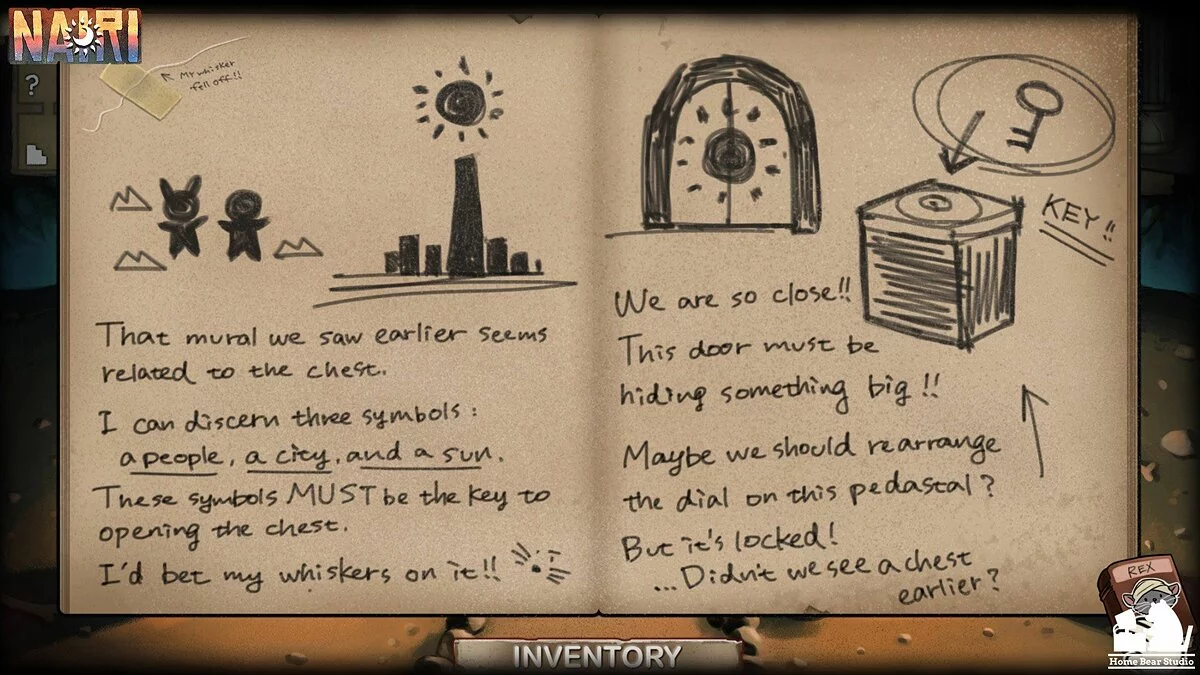 NAIRI
?
Mr whisker
fell off!!
That mural we saw earlier seems
related to the chest.
I can discern three symbols:
a people, a city, and a sun.
These symbols MUST be the key to
opening the chest.
I'd bet my whiskers on it!!
KEY!!
We are so close!!
This door must be
hiding something big!!
Maybe we should rearrange
the dial on this pedastal?
But it's locked!
...Didn't we see a chest
earlier?
REX
INVENTORY
Home Bear Studio